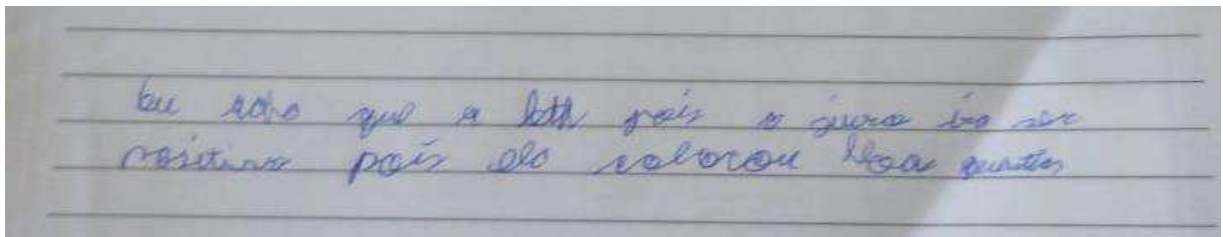 Eu acho que a beth pois o juro ira ser
positivo pois ela colocou boa quantia